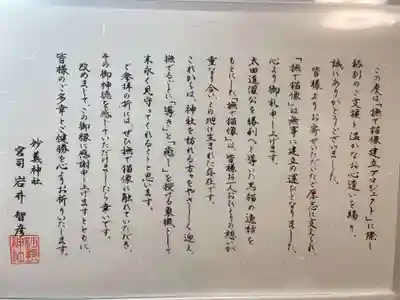 この度は「撫で猫像建立プロジェクト」に際し
格別のご支援と温かなお心遣いを賜り、
誠にありがとうございました。
皆様よりお寄せいただいた御厚志に支えられ、
「撫で猫像」は無事に建立の運びとなりました。
心より御礼申し上げます。
太田道灌公を勝利へと導いた黒猫の逸話を
もとにした「撫で猫像」は、皆様お一人おひとりの想いが
重なり合い、この地に生まれた存在です。
これからは、神社を訪れる方々をやさしく迎え、
撫でるごとに「導き」と「癒し」を授ける象徴として
末永く見守ってくれることと思います。
ご参拝の折には、ぜひ撫で猫像に触れていただき、
その御神徳を感じていただけましたら幸いです。
改めまして、この御縁に感謝申し上げますとともに、
皆様のご多幸とご健勝を心よりお祈りいたします。
妙義神社
宮司 岩井 智彦